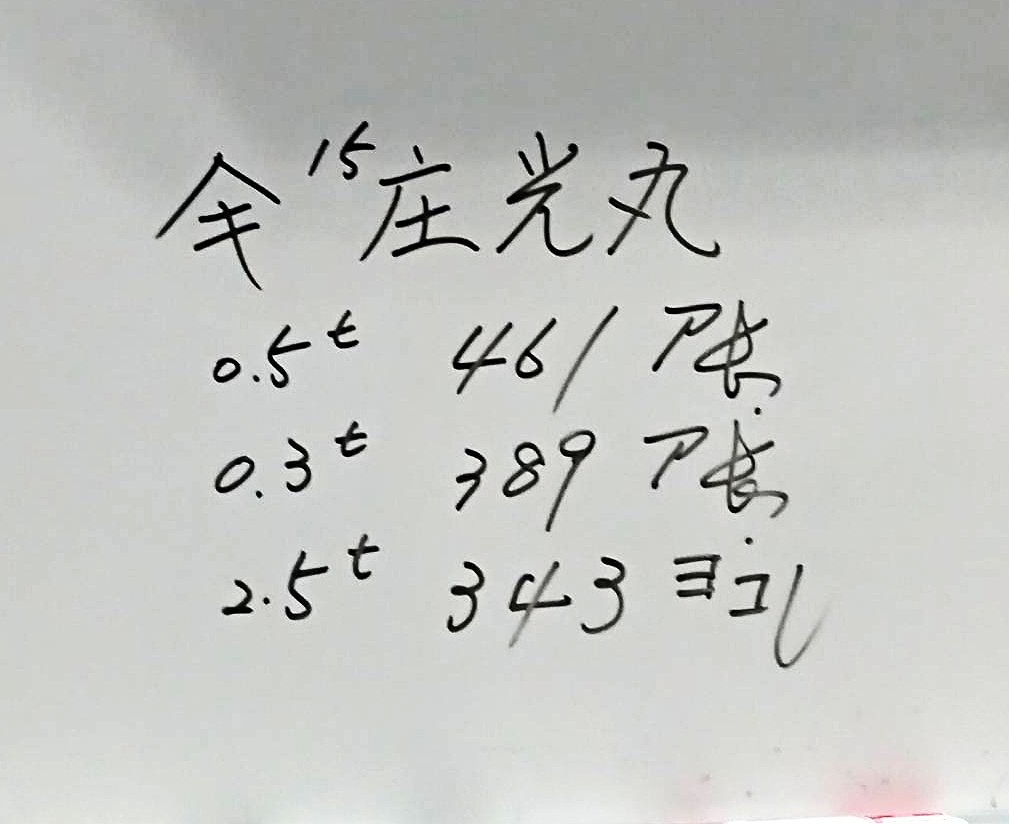 15庄光丸
0.5t 461 ア長
0.3t 389 ア長
2.5t 343 ヨコ